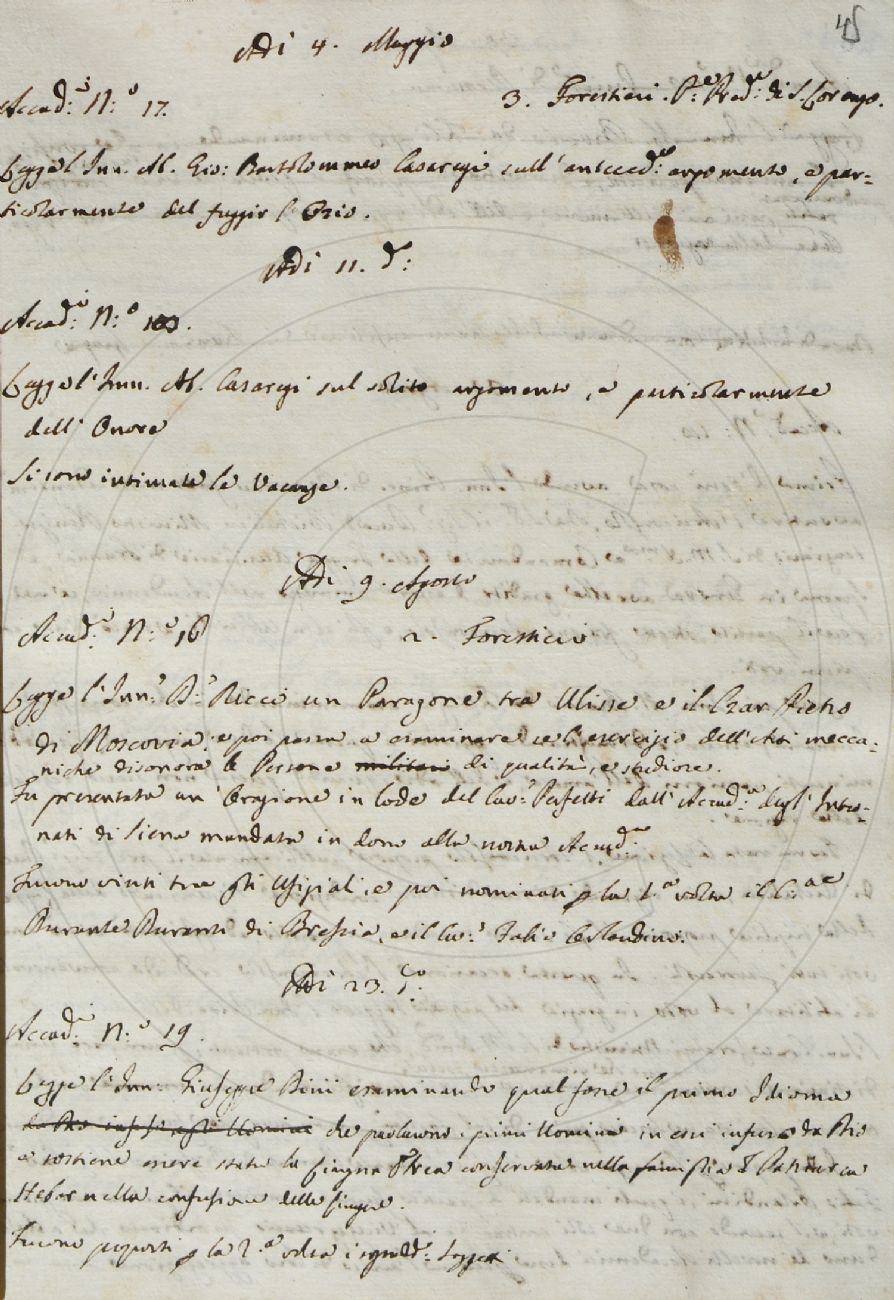 45
Adi 4. Maggio
Accad.i N.o 17. 3. Forestieri. P.e Pred.e di S. Lorenzo.
Legge l'Inn. Ab. Gio: Bartolommeo Casaregi sull'anteced.e argomento, e par=
ticolarmente del fuggir l'Ozio.
Adi 11. d.o
Accad.i N.o
Legge l'Inn. Ab. Casaregi sul solito argomento, e particolarmente
dell'Onore
Si sono intimate le Vacanze.
Adi 9. Agosto
Accad.i N.o 16 2. Forestieri
Legge l'Inn.o D.r Ricci un Paragone tra Ulisse e il Czar Pietro
di Moscovia; e poi passa a esaminare se l'esercizio dell'Arti mecca=
niche disonora le Persone militari di qualità, e studiose.
Fu presentata un'Orazione in lode del Cav.r Perfetti dall'Accad.a degl'Intro=
nati di Siena mandata in dono alla nostra Accad.a
Furono vinti tra gli Uffiziali, e poi nominati p la 1.a volta il C.
Durante Duranti di Brescia, e il Cav.r
Adi 23. d.o
Accad.i N.o 19.
Legge l'Inn. Giuseppe Bini esaminando qual fosse il primo Idioma
da Dio infuso agli Uomini che parlarono i primi Uomini in essi infuso da Dio
e sostiene essere stata la Lingua Ebrea conservata nella famiglia d Patriarca
Heber nella confusione delle Lingue.
Furono proposti p la 2.a volta i sopradd.i Soggetti